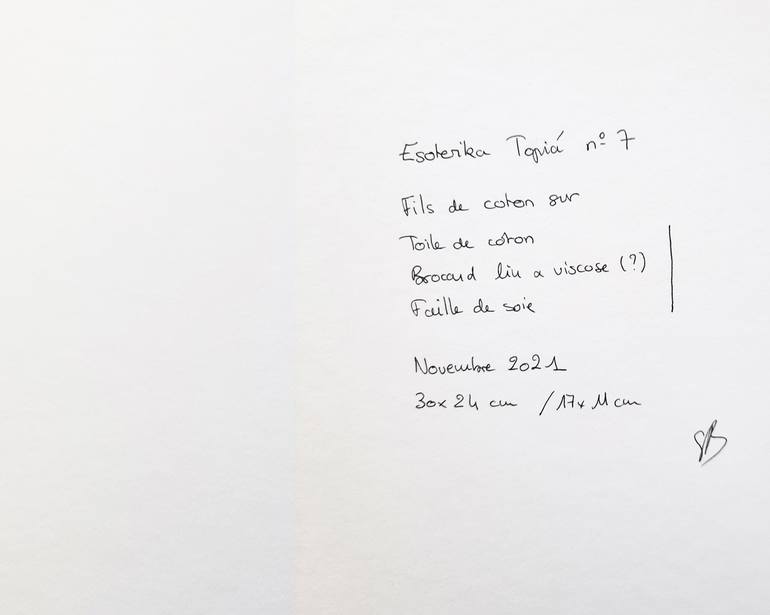 Esoterika Topiá nº 7
Fils de coton sur
Toile de coton
Brocard lin & viscose (?)
Faille de soie
Novembre 2021
30x24 cm / 17x11 cm